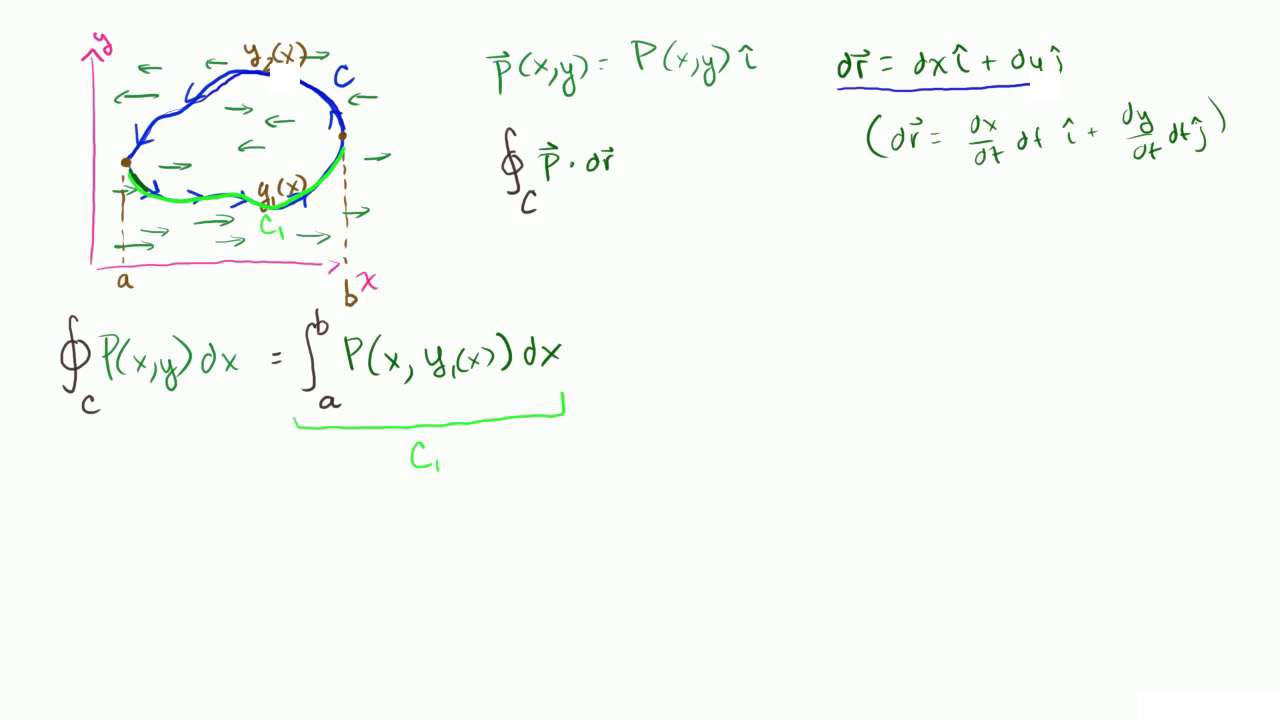 y
y₂(x)
C
y₁(x)
C₁
a
b
x
P⃗(x,y) = P(x,y) î
∮_C P⃗ · dr⃗
dr⃗ = dx î + dy ĵ
(dr⃗ = dx/dt dt î + dy/dt dt ĵ)
∮_C P(x,y) dx = ∫_a^b P(x, y₁(x)) dx
C₁